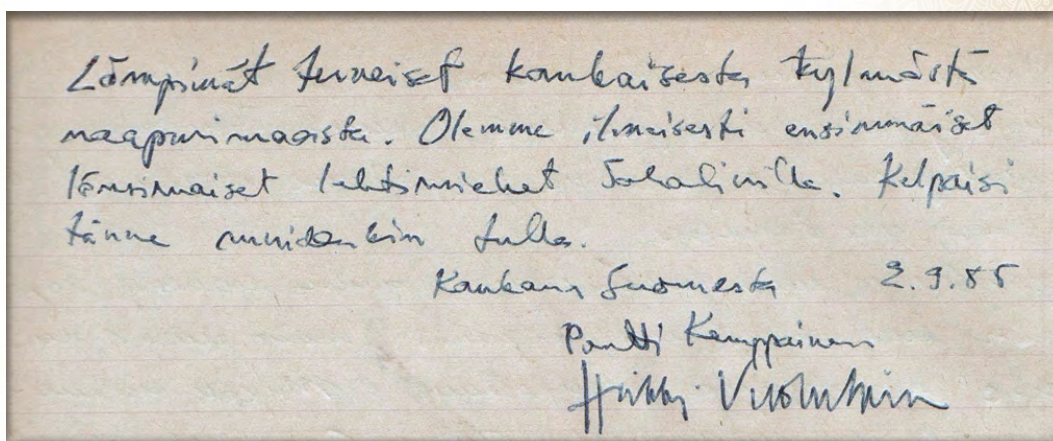 Lämpimät terveiset kaukaisesta kylmästä
naapurimaasta. Olemme ilmeisesti ensimmäiset
länsimaiset lehtimiehet Sahalinilla. Kelpaisi
tänne muidenkin tulla.
Kaukana Suomesta 2.9.85
Pentti Kemppainen
Heikki